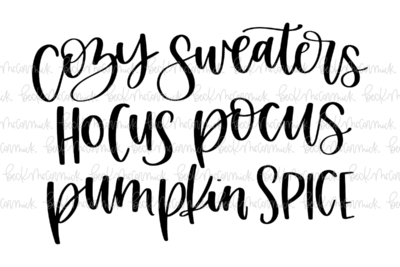 cozy sweaters
HOCUS pocus
pumpkin SPICE